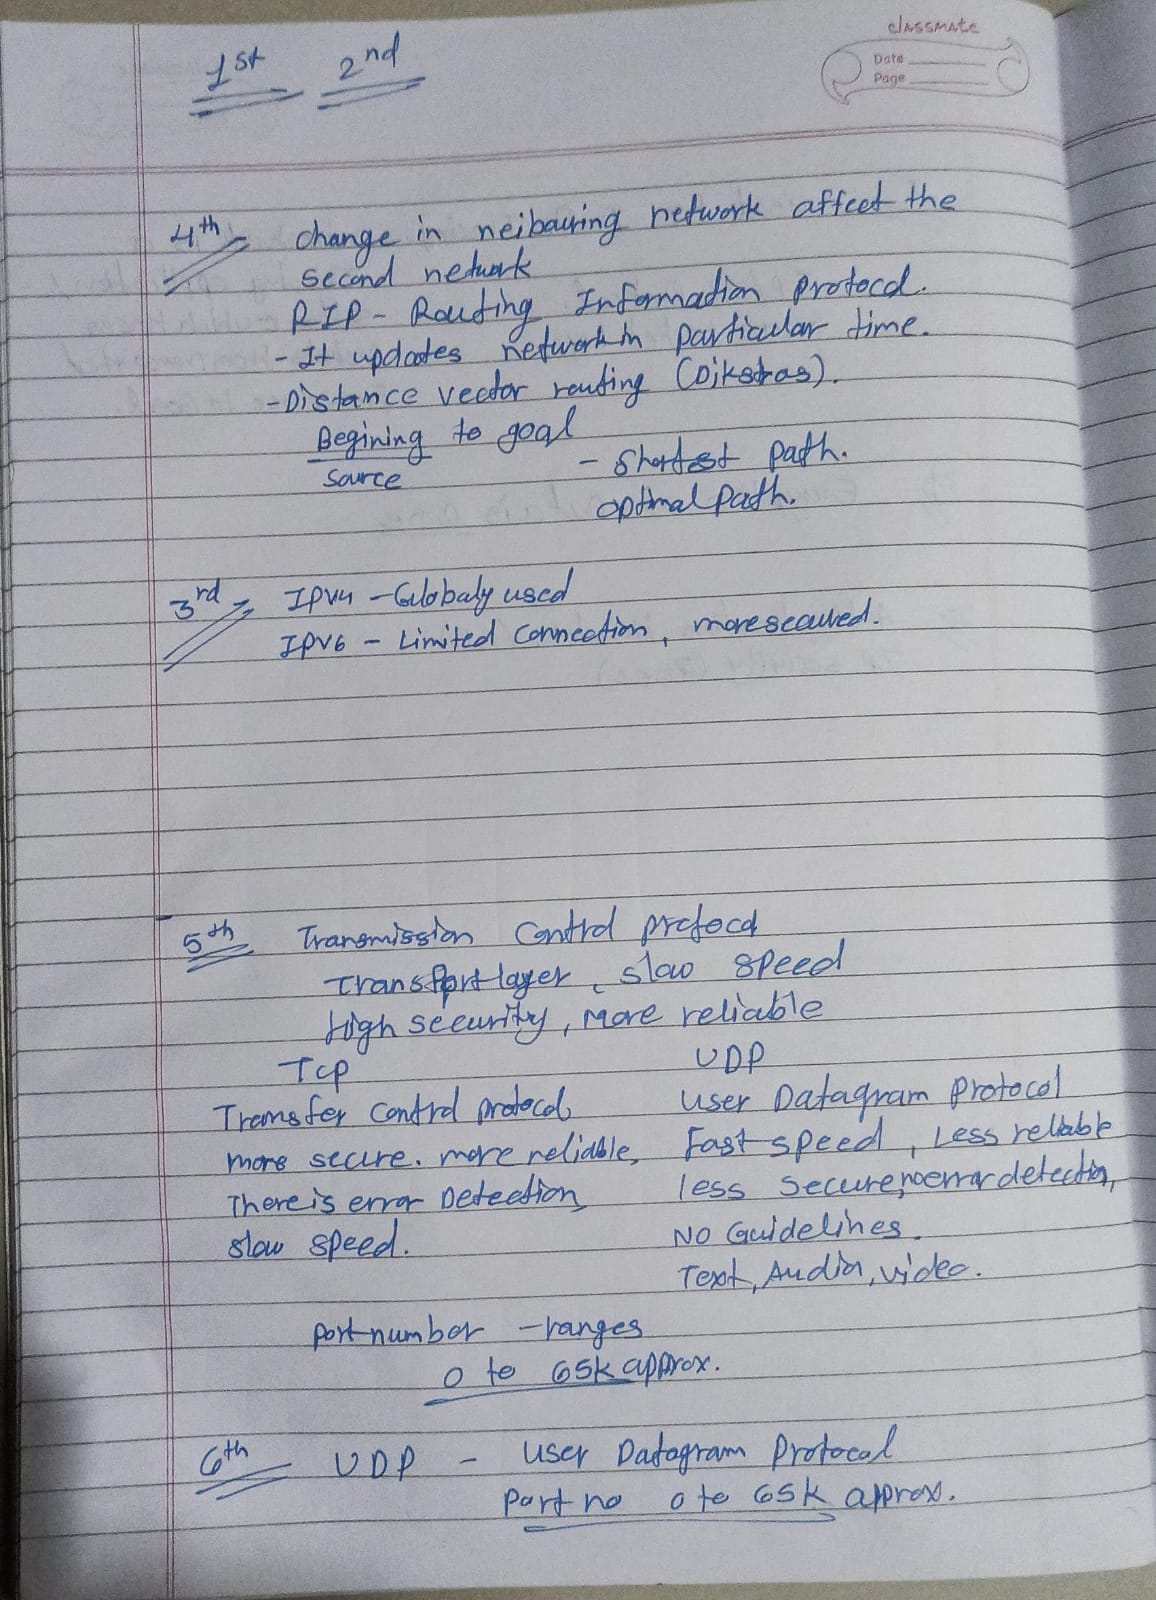 classmate
Date
Page
1st 2nd
4th change in neibauring network affect the
second network
RIP - Routing Information protocol.
- It updates network in particular time.
- Distance vector routing (Dikstras).
Begining to goal
source
- Shortest path.
optimal path.
3rd IPV4 - Globaly used
IPV6 - Limited Connection, more secured.
5th Transmission Control protocol
Transport layer, slow speed
High security, more reliable
TCP UDP
Transfer control protocol, User Datagram Protocol
more secure. more reliable, Fast speed, Less reliable
There is error Detection, less secure, no error detection,
slow speed. NO Guidelines.
Text, Audio, video.
port number - ranges
0 to 65k approx.
6th UDP - User Datagram Protocol
Port no 0 to 65k approx.